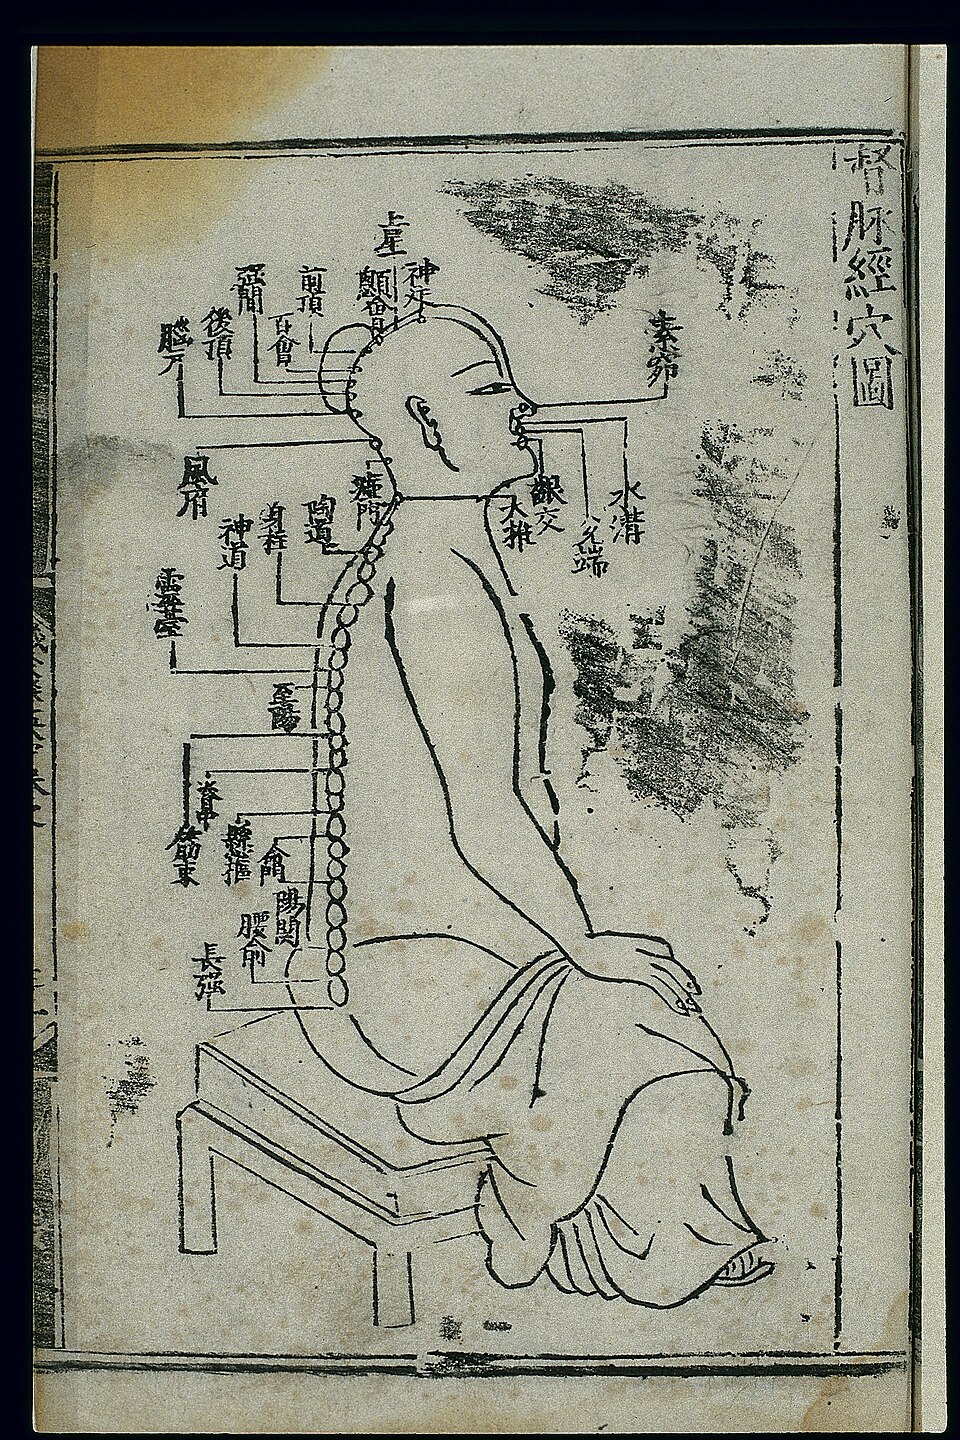 督脉經穴圖
上星
神庭
顖會
前頂
百會
強間
後頂
腦戶
素窌
風府
瘂門
陶道
身柱
神道
靈臺
大椎
齦交
兊端
水溝
至陽
筋束
脊中
懸樞
命門
陽関
腰俞
長强